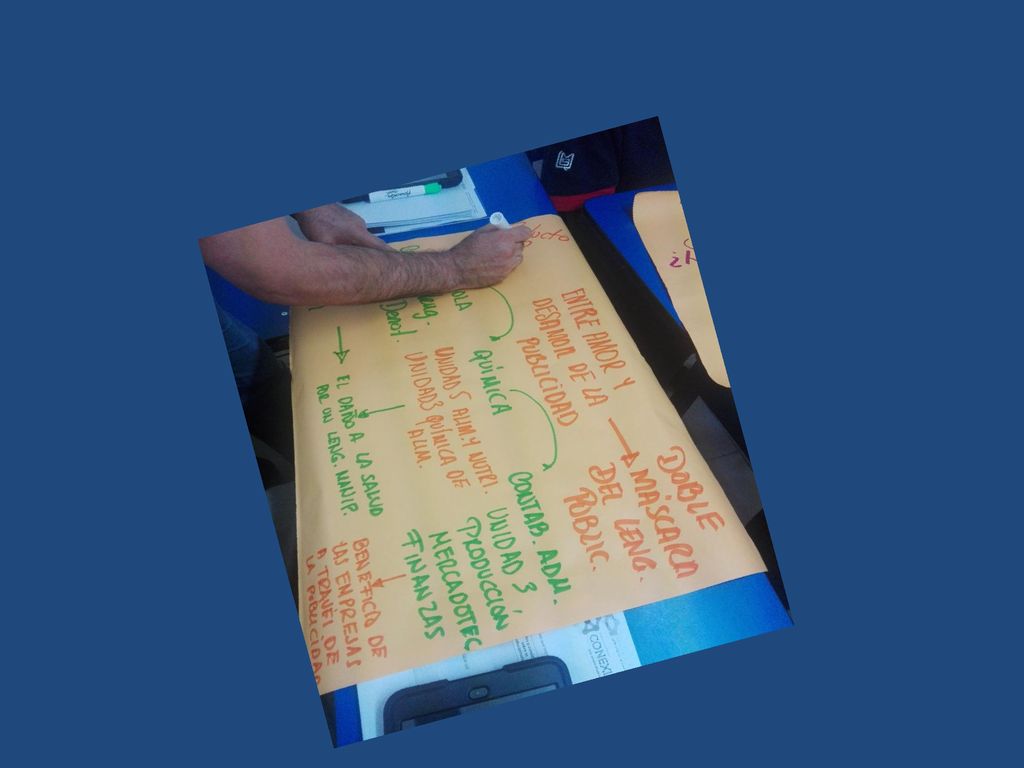 ENTRE AMOR Y
DESAMOR DE LA
PUBLICIDAD
DOBLE
MÁSCARA
DEL LENG.
PUBLIC.
QUÍMICA
UNIDAD 5 ALIM. Y NUTRI.
UNIDAD 3 QUÍMICA DE
ALIM.
CONTAB. ADM.
UNIDAD 3,
PRODUCCIÓN
MERCADOTEC
FINANZAS
EL DAÑO A LA SALUD
POR UN LENG. MANIP.
BENEFICIO DE
LAS EMPRESAS
A TRAVEL DE
LA PUBLICIDA
CONEXI